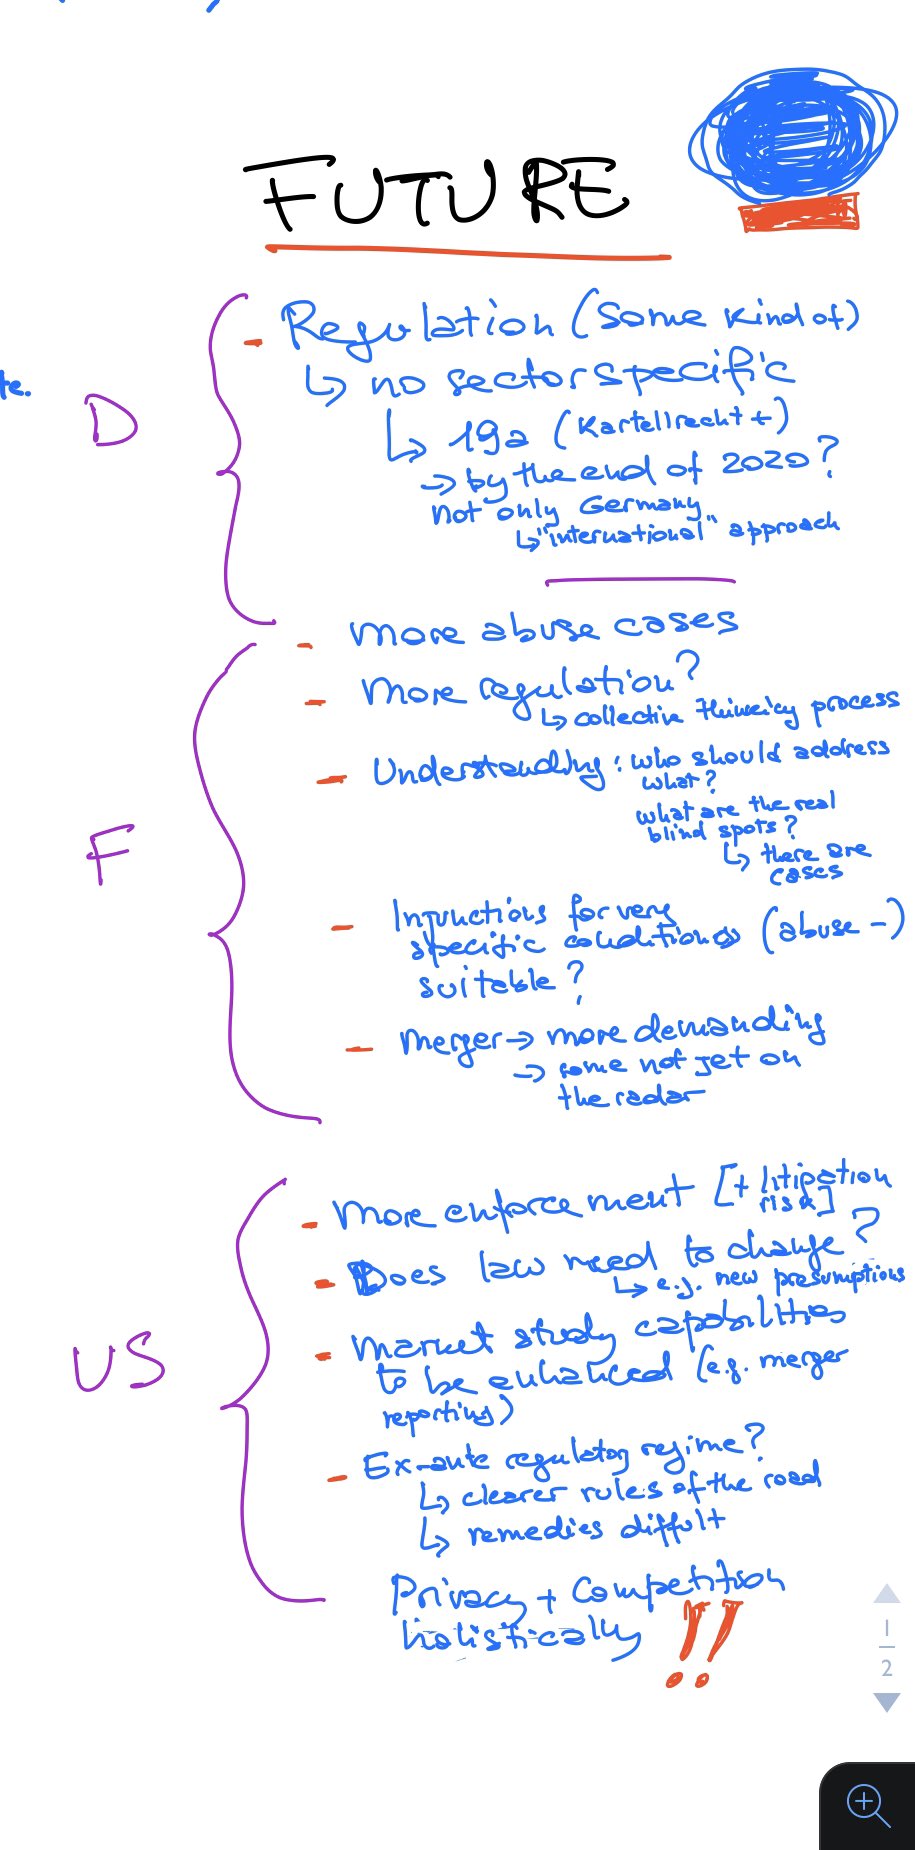 FUTURE
te.
D
- Regulation (some kind of)
↳ no sectorspecific
↳ 19a (Kartellrecht +)
→ by the end of 2020?
not only Germany
↳ "international" approach
F
- more abuse cases
- more regulation?
↳ collective process
- Understanding: who should address
what?
what are the real
blind spots?
↳ there are
cases
- Injunctions for very
specific conditions (abuse -)
suitable?
- merger → more demanding
→ some not jet on
the radar
US
- more enforcement [+ litigation
risk]
- Does law need to change?
↳ e.g. new presumptions
- market study capabilities
to be enhanced (e.g. merger
reporting)
- Ex-ante regulatory regime?
↳ clearer rules of the road
↳ remedies diffult
Privacy + Competition
holistically !!
1
2